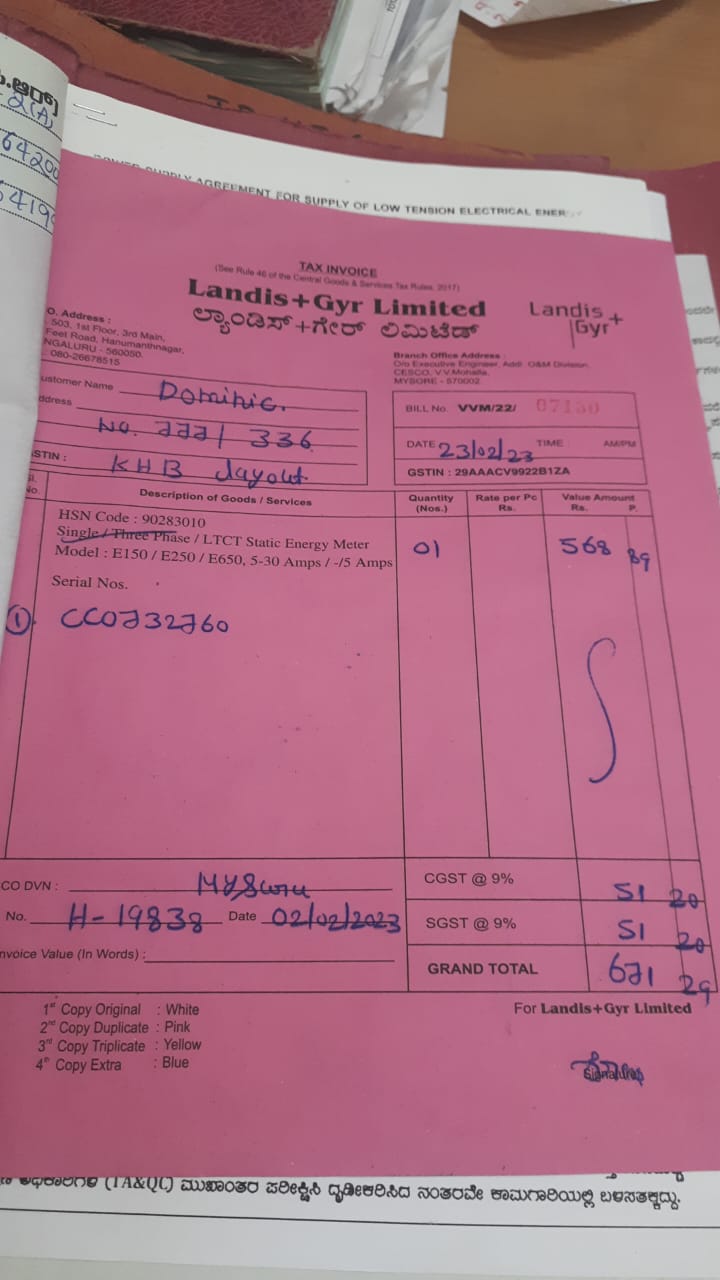 2(A)
POWER SUPPLY AGREEMENT FOR SUPPLY OF LOW TENSION ELECTRICAL ENERGY
TAX INVOICE
(See Rule 46 of the Central Goods & Services Tax Rules, 2017)
Landis+Gyr Limited
ಲ್ಯಾಂಡಿಸ್+ಗೇರ್ ಲಿಮಿಟೆಡ್
Landis+
Gyr
O. Address :
503, 1st Floor, 3rd Main,
Feet Road, Hanumanthnagar,
NGALURU - 560050.
080-26678515
Branch Office Address :
O/o Executive Engineer, Addl. O&M Division,
CESCO, V.V.Mohalla,
MYSORE - 570002
ustomer Name Dominic.
ddress No. 777/ 336
STIN : KHB Layout
BILL No. VVM/22/ 07130
DATE 23/02/23 TIME : AM/PM
GSTIN : 29AAACV9922B1ZA
No. Description of Goods / Services Quantity (Nos.) Rate per Pc Rs. Value Amount Rs. P.
HSN Code : 90283010
Single / Three Phase / LTCT Static Energy Meter
Model : E150 / E250 / E650, 5-30 Amps / -/5 Amps 01 568 89
Serial Nos.
① CC0732760
CO DVN : Mysuru
CGST @ 9% 51 20
No. H-19838 Date 02/02/2023
SGST @ 9% 51 20
nvoice Value (In Words) :
GRAND TOTAL 671 29
1st Copy Original : White
2nd Copy Duplicate : Pink
3rd Copy Triplicate : Yellow
4th Copy Extra : Blue
For Landis+Gyr Limited
Signature
(TA&QC) ಮುಖಾಂತರ ಪರೀಕ್ಷಿಸಿ ದೃಢೀಕರಿಸಿದ ನಂತರವೇ ಕಾಮಗಾರಿಯಲ್ಲಿ ಬಳಸತಕ್ಕದ್ದು.